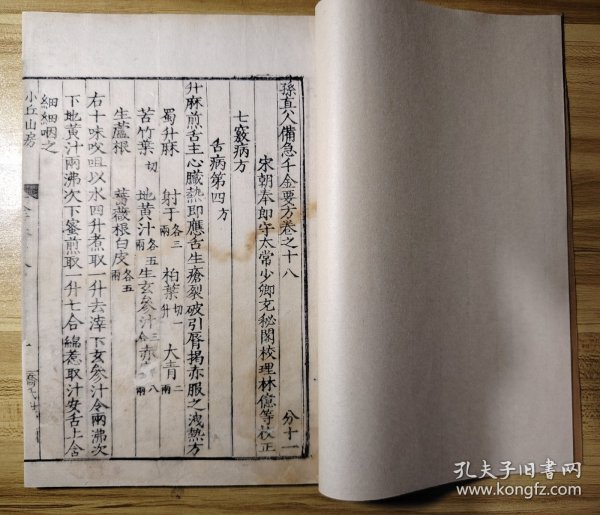 孫真人備急千金要方卷之十八 分十一
宋朝奉郎守太常少卿充秘閣校理林億等校正
七竅病方
舌病第四方
升麻煎舌主心臟熱即應舌生瘡裂破引脣揭赤服之洩熱方
蜀升麻 射干各三兩 柏葉切一升 大青二兩
苦竹葉切 地黃汁各五 生玄參汁 赤
生蘆根 薔薇根白皮各五兩
右十味㕮咀以水四升煮取一升去滓下玄參汁令兩沸次
下地黃汁兩沸次下蜜煎取一升七合綿惹取汁安舌上含
細細咽之
小丘山房
孔夫子旧书网
www.kongfz.com